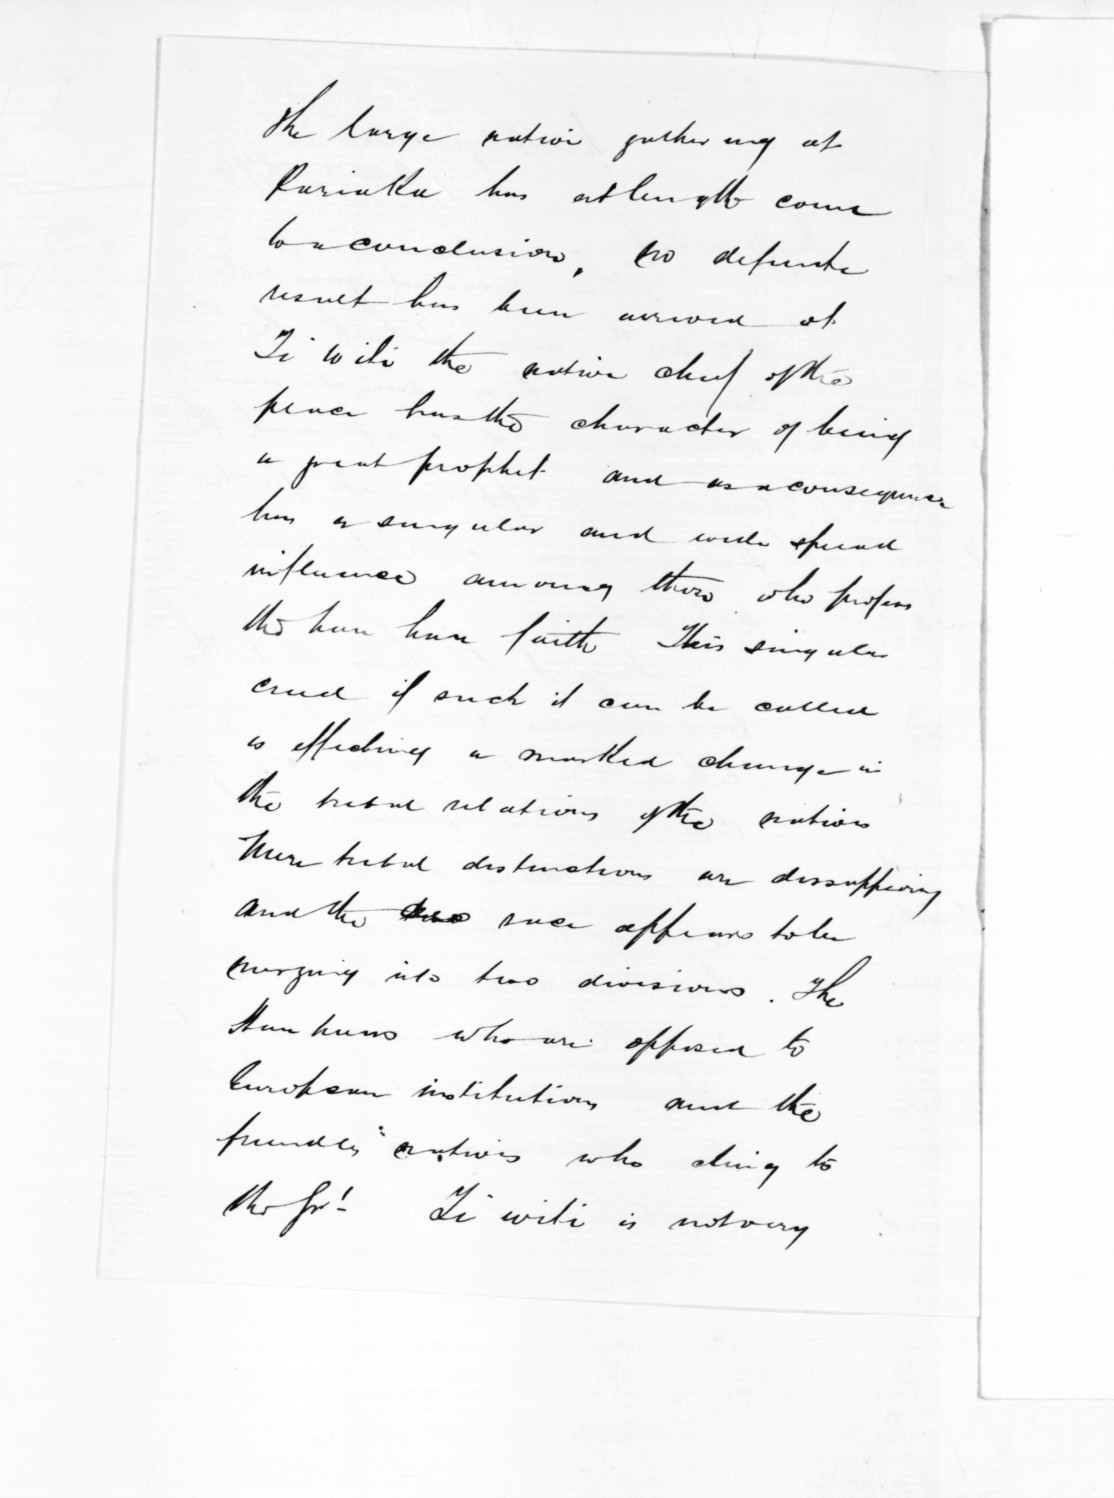 The large native gathering at
Pariaka has at length come
to a conclusion, no definite
result has been arrived at
Ti Witi the native chief of the
peace has the character of being
a great prophet and as a consequence
has a singular and wide spread
influence among those who profess
the hau hau faith This singular
creed if such it can be called
is effecting a marked change in
the tribal relations of the natives
Mere tribal distinctions are dissappearing
and the race appears to be
merging into two divisions. The
Hau haus who are opposed to
European institutions and the
friendly" natives who cling to
the Govt Ti witi is not very